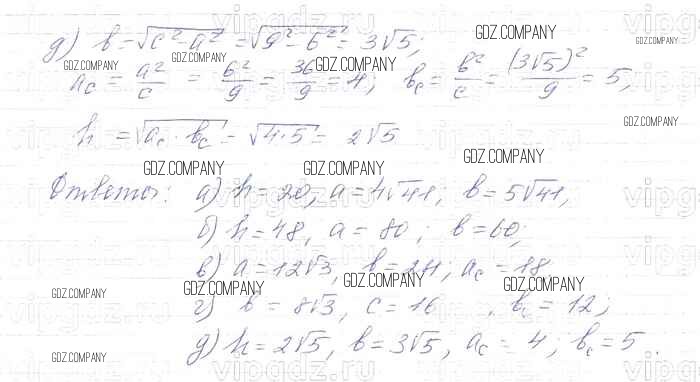 д) b = √(c² - a²) = √(9² - 6²) = 3√5;
a_c = a²/c = 6²/9 = 36/9 = 4; b_c = b²/c = (3√5)²/9 = 5;
h = √(a_c · b_c) = √(4·5) = 2√5
Ответы: а) h = 20, a = 4√41; b = 5√41,
б) h = 48, a = 80; b = 60;
в) a = 12√3, b = 24; a_c = 18,
г) b = 8√3, c = 16, b_c = 12;
д) h = 2√5, b = 3√5, a_c = 4; b_c = 5.
GDZ.COMPANY
GDZ.COMPANY
GDZ.COMPANY
GDZ.COMPANY
GDZ.COMPANY
GDZ.COMPANY
GDZ.COMPANY
GDZ.COMPANY
GDZ.COMPANY
GDZ.COMPANY
GDZ.COMPANY
GDZ.COMPANY
GDZ.COMPANY
GDZ.COMPANY
vipgdz.ru